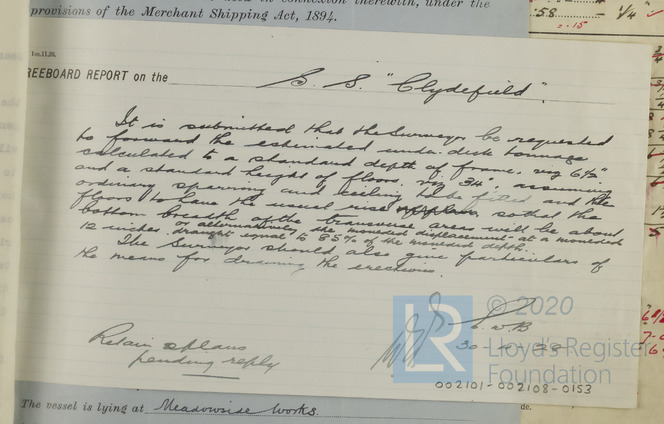 in connexion therewith, under the
provisions of the Merchant Shipping Act, 1894.
:58 — 1/4
:15
REEBOARD REPORT on the S. S. "Clydefield".
It is submitted that the Surveyor be requested
to forward the estimated under deck tonnage
calculated to a standard depth of frame, viz 6½"
and a standard height of floors, viz 34", assuming
ordinary sparring and ceiling to be fitted and the
floors to have the usual rise so that the
bottom breadth of the transverse areas will be about
12 inches. or alternatively, the moulded displacement at a moulded
draught equal to 85% of the moulded depth.
The Surveyor should also give particulars of
the means for draining the erections.
Retain plans
pending reply
© 2020
Lloyd's Register
Foundation
LR
002101-002108-0153
The vessel is lying at Meadowside Works.
de.